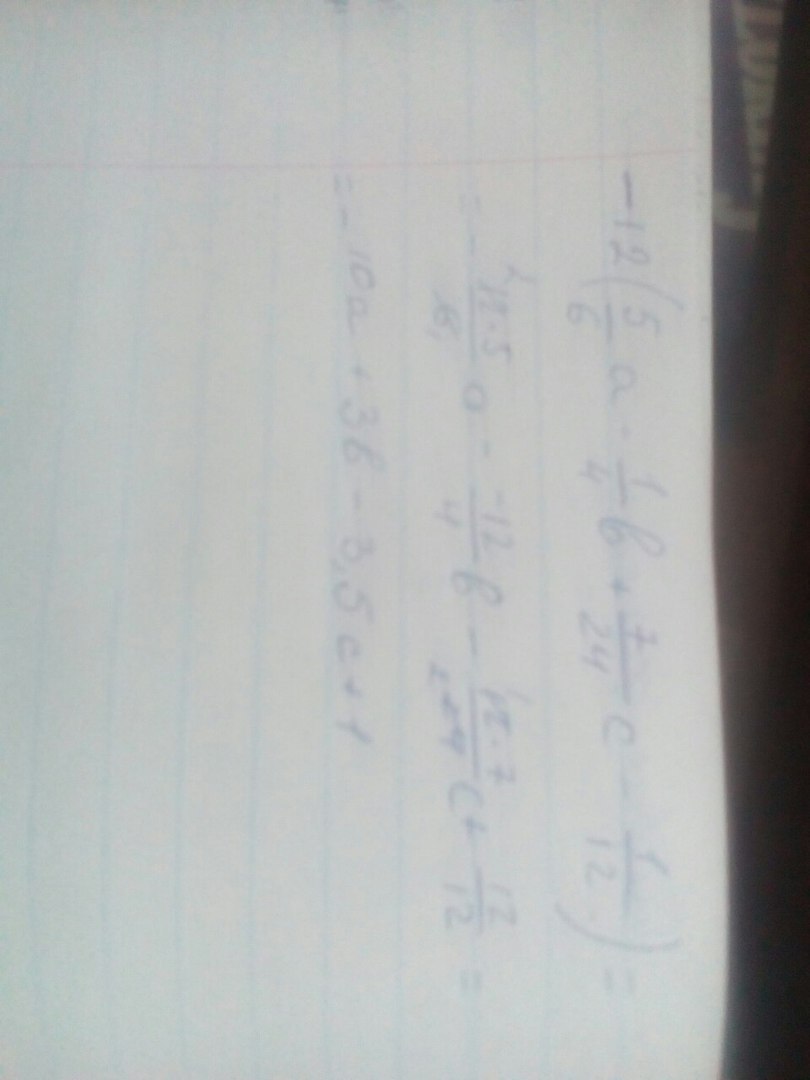 -12(5/6 a - 1/4 b + 7/24 c - 1/12) =
= - 12·5/6 a - -12/4 b - 12·7/24 c + 12/12 =
= -10a + 3b - 3,5c + 1